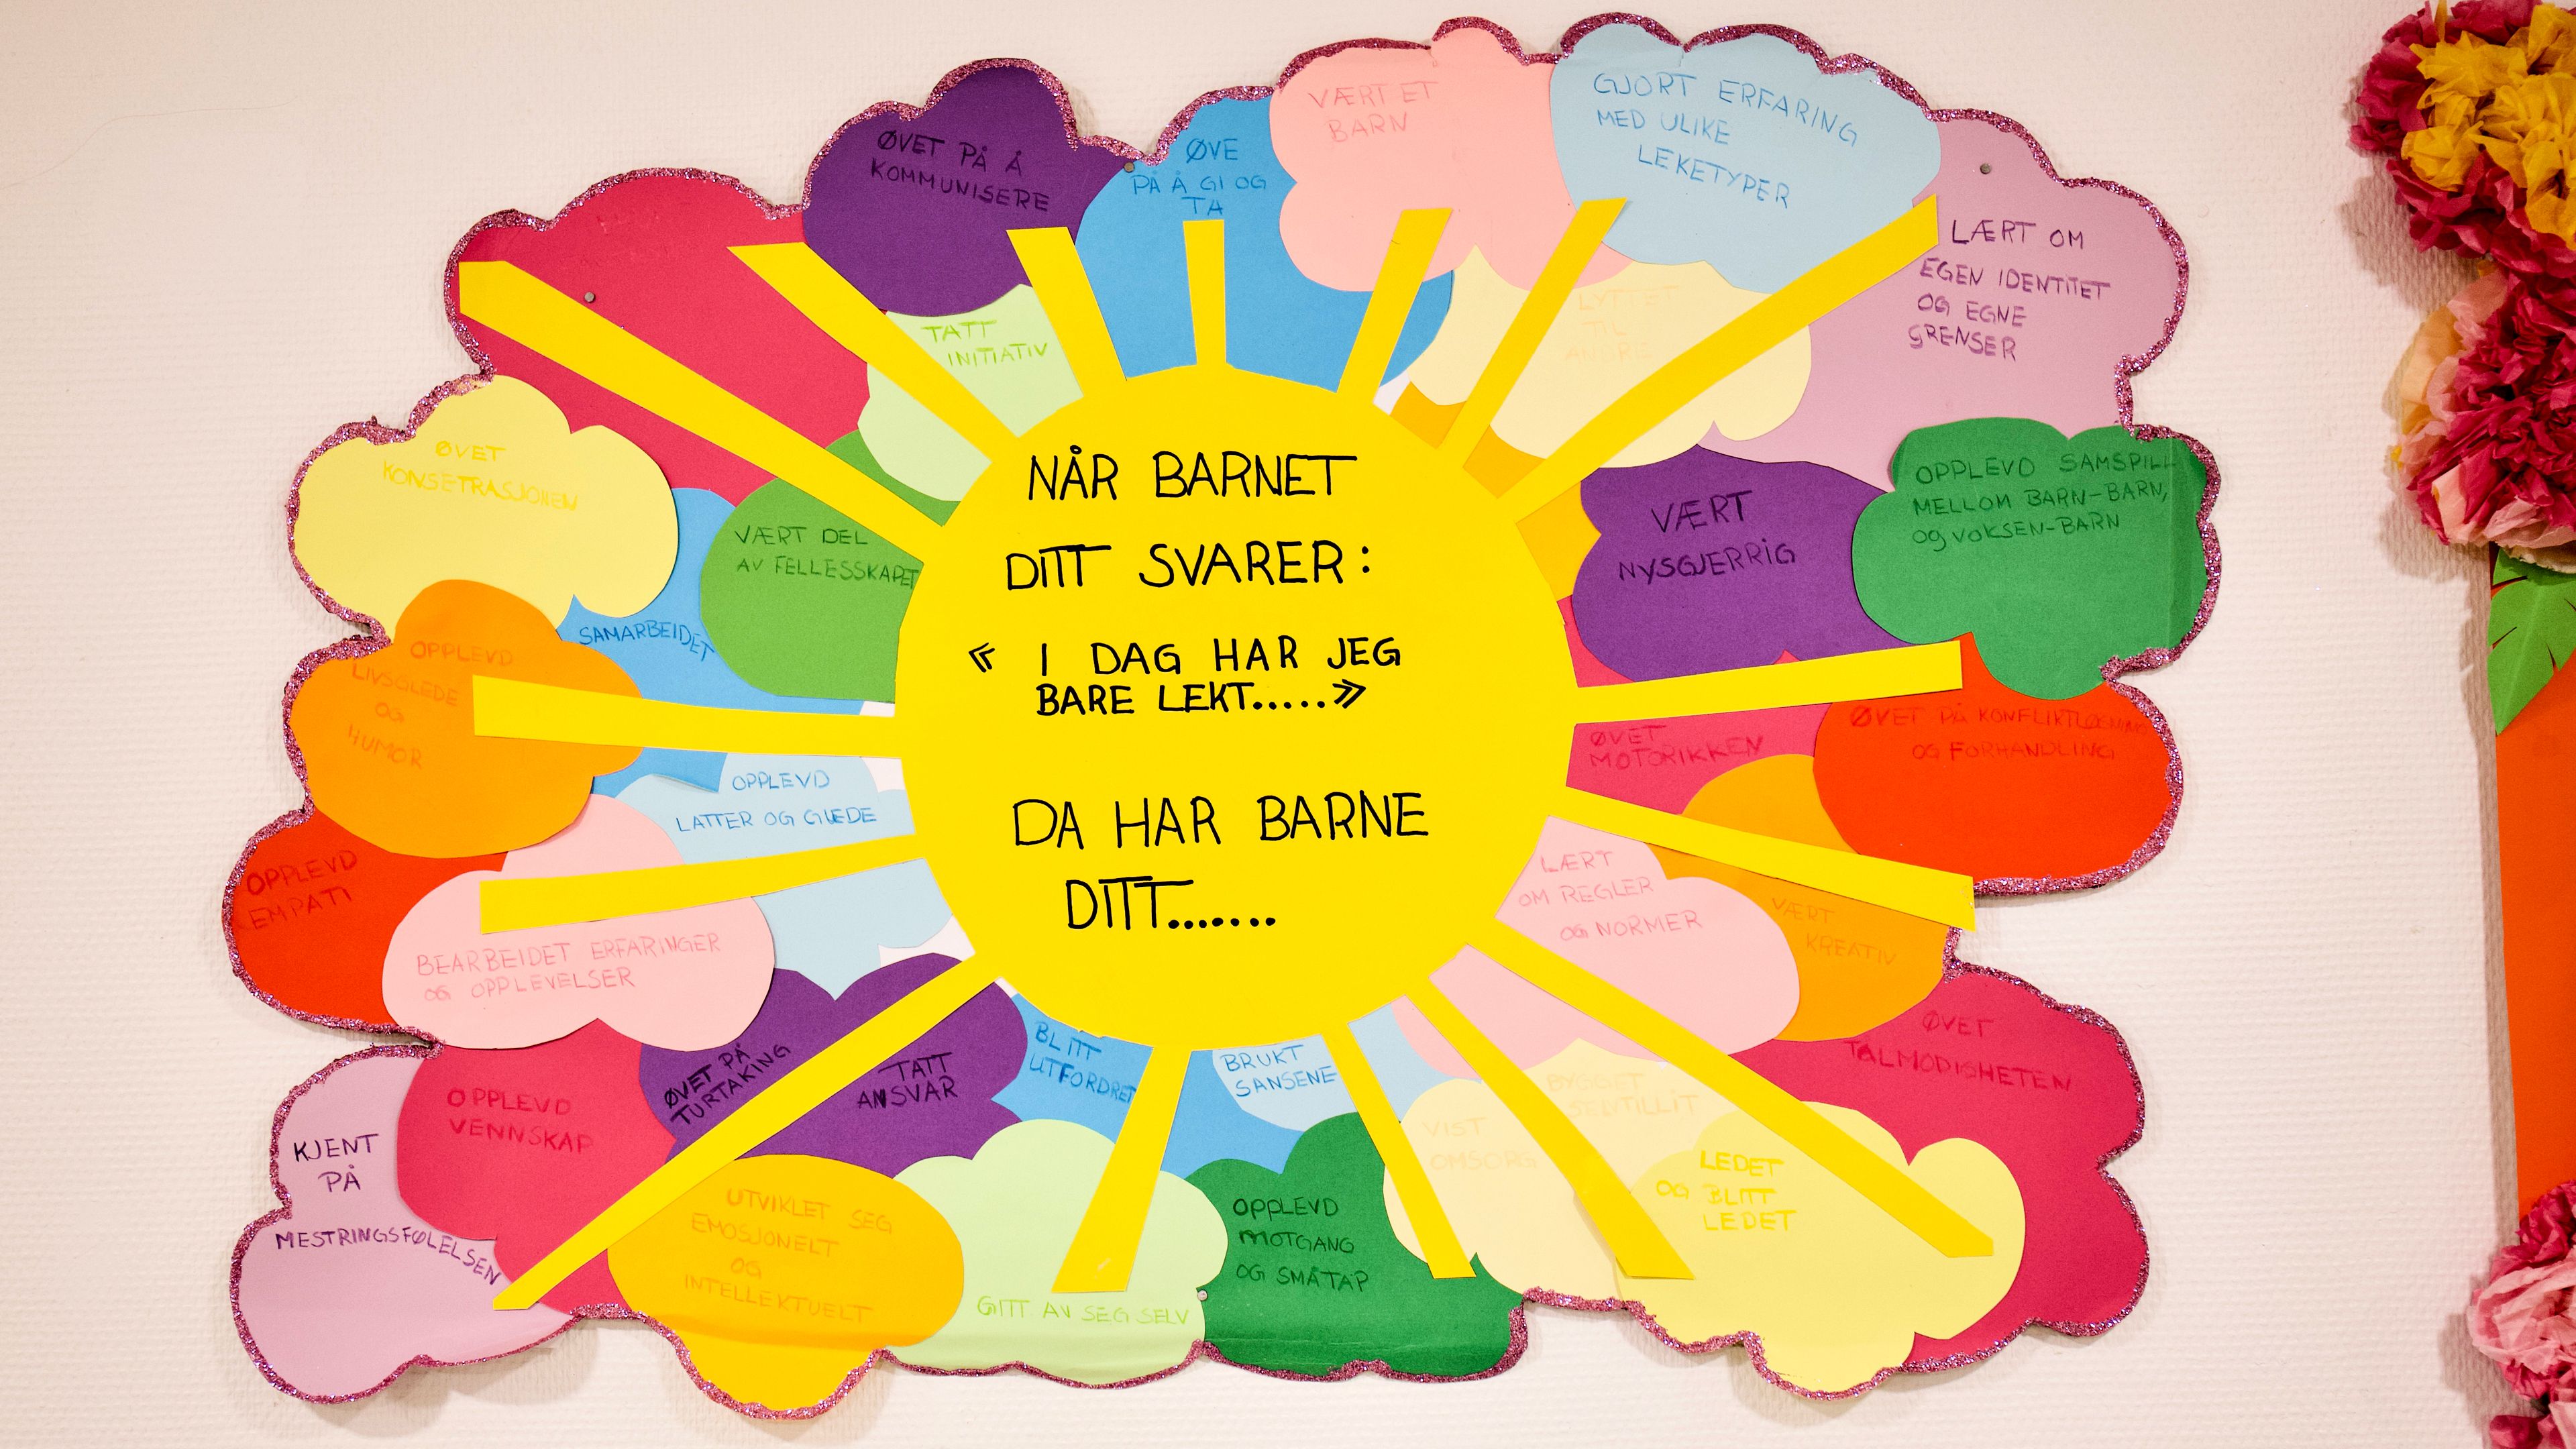 NÅR BARNET
DITT SVARER:
« I DAG HAR JEG
BARE LEKT.....»
DA HAR BARNE
DITT.......
ØVET PÅ Å
KOMMUNISERE
ØVE
PÅ Å GI OG
TA
VÆRT ET
BARN
GJORT ERFARING
MED ULIKE
LEKETYPER
LÆRT OM
EGEN IDENTITET
OG EGNE
GRENSER
TATT
INITIATIV
LYTTET
TIL
ANDRE
ØVET
KONSETRASJONEN
VÆRT DEL
AV FELLESSKAPET
VÆRT
NYSGJERRIG
OPPLEVD SAMSPILL
MELLOM BARN-BARN,
Og VOKSEN-BARN
SAMARBEIDET
OPPLEVD
LIVSGLEDE
OG
HUMOR
ØVET
MOTORIKKEN
ØVET PÅ KONFLIKTLØSNING
OG FORHANDLING
OPPLEVD
LATTER OG GLEDE
OPPLEVD
EMPATI
BEARBEIDET ERFARINGER
OG OPPLEVELSER
LÆRT
OM REGLER
OG NORMER
VÆRT
KREATIV
ØVET
TÅLMODIGHETEN
OPPLEVD
VENNSKAP
ØVET PÅ
TURTAKING
TATT
ANSVAR
BLITT
UTFORDRET
BRUKT
SANSENE
VIST
OMSORG
BYGGET
SELVTILLIT
LEDET
OG BLITT
LEDET
KJENT
PÅ
MESTRINGSFØLELSEN
UTVIKLET SEG
EMOSJONELT
OG
INTELLEKTUELT
GITT AV SEG SELV
OPPLEVD
MOTGANG
OG SMÅTAP